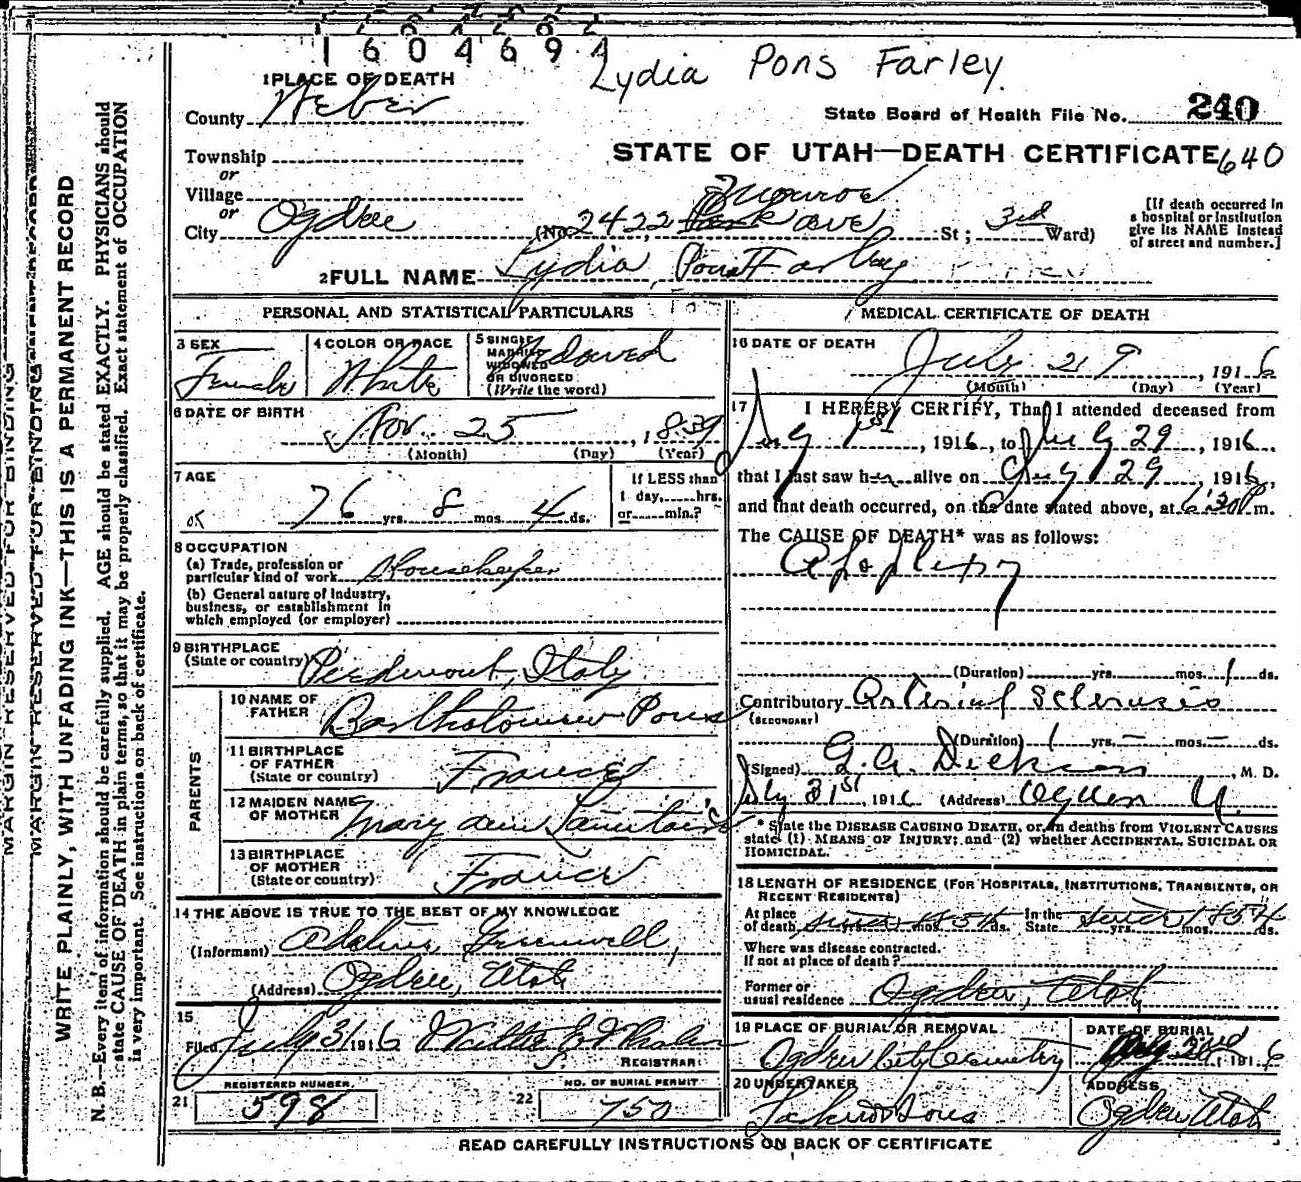 1604694
Lydia Pons Farley
1 PLACE OF DEATH
County Weber
State Board of Health File No. 240
Township
STATE OF UTAH—DEATH CERTIFICATE 640
or
Village
Munroe
or
City Ogden (No. 2422 Park ave St; 3rd Ward)
[If death occurred in a hospital or institution give its NAME instead of street and number.]
2 FULL NAME Lydia Pons Farley
PERSONAL AND STATISTICAL PARTICULARS
3 SEX Female
4 COLOR OR RACE White
5 SINGLE MARRIED WIDOWED OR DIVORCED (Write the word) Widowed
6 DATE OF BIRTH
Nov. 25, 1839
(Month) (Day) (Year)
7 AGE
76 yrs. 8 mos. 4 ds.
If LESS than 1 day,......hrs. or......min.?
OK
8 OCCUPATION
(a) Trade, profession or particular kind of work Housekeeper
(b) General nature of industry, business, or establishment in which employed (or employer)
9 BIRTHPLACE
(State or country) Piedmont, Italy
PARENTS
10 NAME OF FATHER Bartholomew Pons
11 BIRTHPLACE OF FATHER (State or country) France
12 MAIDEN NAME OF MOTHER Mary Ann
13 BIRTHPLACE OF MOTHER (State or country) France
14 THE ABOVE IS TRUE TO THE BEST OF MY KNOWLEDGE
(Informant) Adeline Greenwell,
(Address) Ogden, Utah
15
Filed July 31 1916 Walter E Whalen
REGISTRAR
REGISTERED NUMBER.
21 598
NO. OF BURIAL PERMIT
22 750
MEDICAL CERTIFICATE OF DEATH
16 DATE OF DEATH
July 29, 1916
(Month) (Day) (Year)
17 I HEREBY CERTIFY, That I attended deceased from
July 1st, 1916, to July 29, 1916.
that I last saw her alive on July 29, 1916,
and that death occurred, on the date stated above, at 6:30 P m.
The CAUSE OF DEATH* was as follows:
Apoplexy
(Duration) yrs. mos. 1 ds.
Contributory Arterial Sclerosis
(SECONDARY)
(Duration) 1 yrs. — mos. — ds.
(Signed) G. A. Dickson, M. D.
July 31st, 1916 (Address) Ogden U.
* State the DISEASE CAUSING DEATH, or, in deaths from VIOLENT CAUSES state (1) MEANS OF INJURY; and (2) whether ACCIDENTAL, SUICIDAL OR HOMICIDAL.
18 LENGTH OF RESIDENCE (FOR HOSPITALS, INSTITUTIONS, TRANSIENTS, OR RECENT RESIDENTS)
At place of death since 1854 yrs. mos. ds. In the State since 1854 yrs. mos. ds.
Where was disease contracted. If not at place of death?
Former or usual residence Ogden, Utah
19 PLACE OF BURIAL OR REMOVAL
Ogden City Cemetery
DATE OF BURIAL
2nd, 1916
20 UNDERTAKER
Larkin & Sons
ADDRESS
Ogden, Utah
READ CAREFULLY INSTRUCTIONS ON BACK OF CERTIFICATE
MARGIN RESERVED FOR BINDING
MARGIN RESERVED FOR BINDING
WRITE PLAINLY, WITH UNFADING INK—THIS IS A PERMANENT RECORD
N. B.—Every item of information should be carefully supplied. AGE should be stated EXACTLY. PHYSICIANS should
state CAUSE OF DEATH in plain terms, so that it may be properly classified. Exact statement of OCCUPATION
is very important. See instructions on back of certificate.